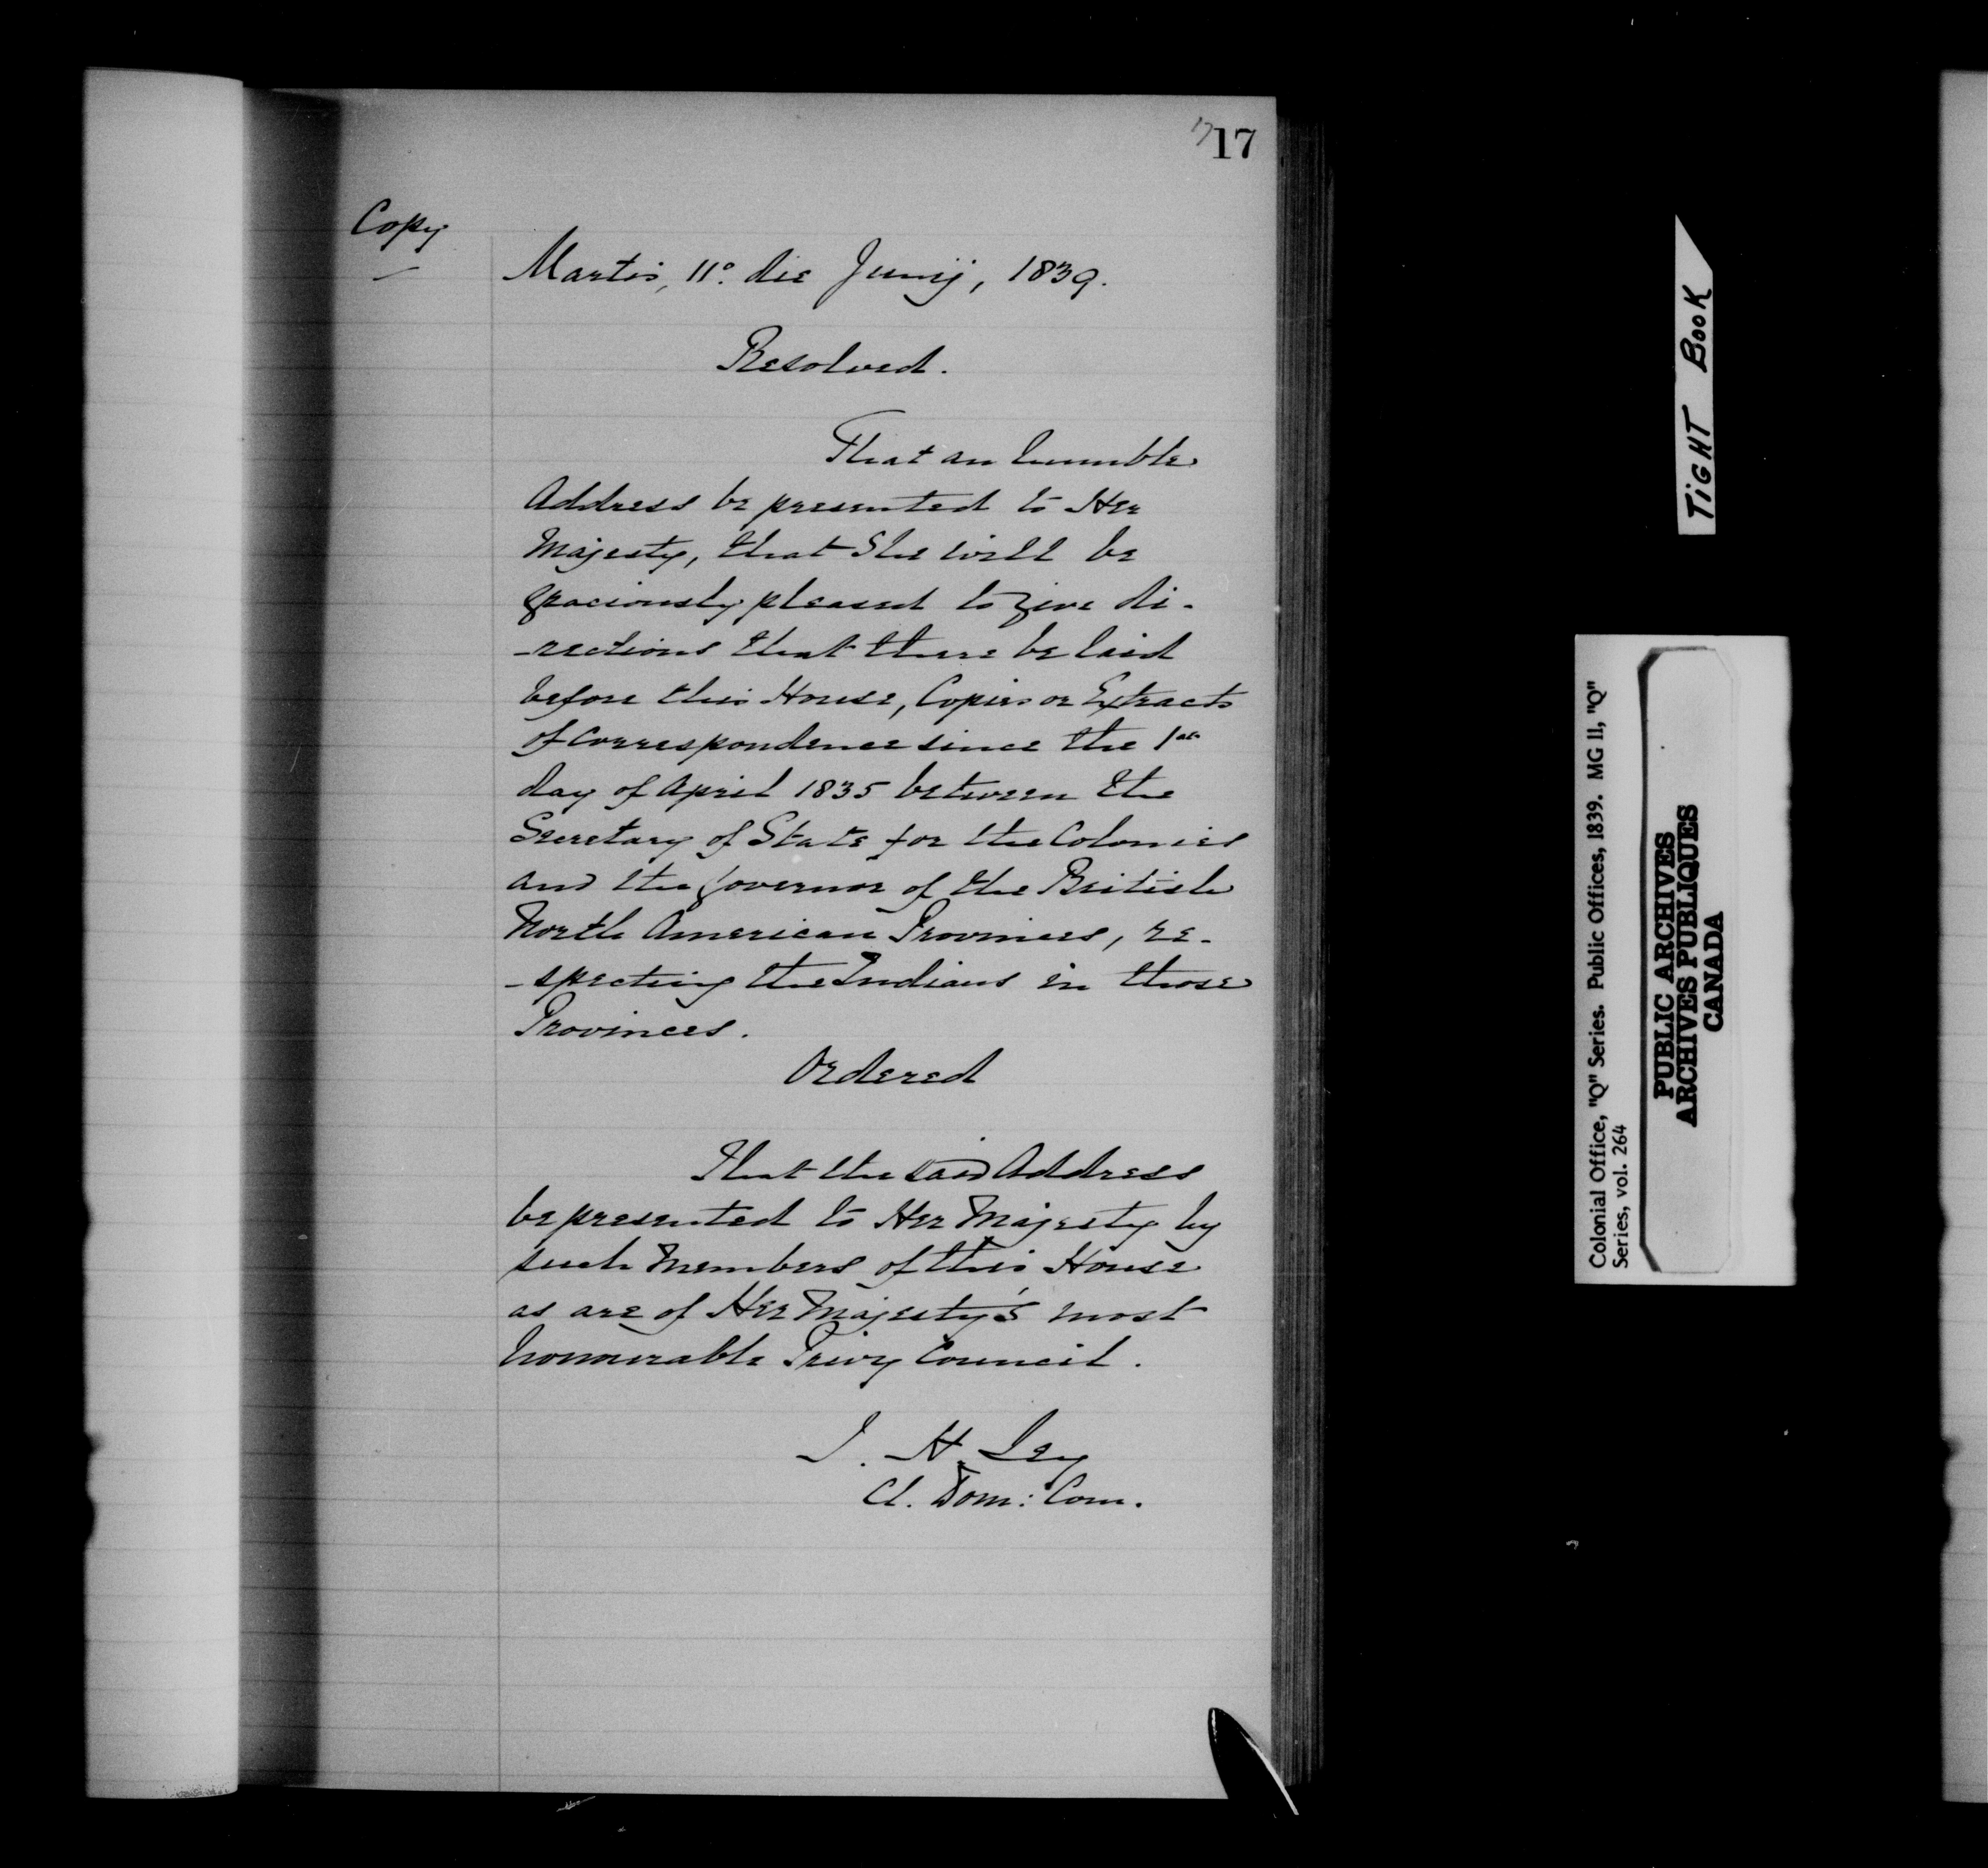 17
17
Copy
Martis, 11º. die Junij, 1839.
Resolved.
That an humble
Address be presented to Her
Majesty, that She will be
graciously pleased to give di-
-rections that there be laid
before this House, Copies or Extracts
of Correspondence since the 1st
day of April 1835 between the
Secretary of State for the Colonies
and the Governor of the British
North American Provinces, re-
-specting the Indians in those
Provinces.
Ordered
That the said Address
be presented to Her Majesty by
such Members of this House
as are of Her Majesty's most
honourable Privy Council.
J. H. Ley
Cl. Dom: Com.
TIGHT BOOK
Colonial Office, "Q" Series. Public Offices, 1839. MG 11, "Q"
Series, vol. 264
PUBLIC ARCHIVES
ARCHIVES PUBLIQUES
CANADA